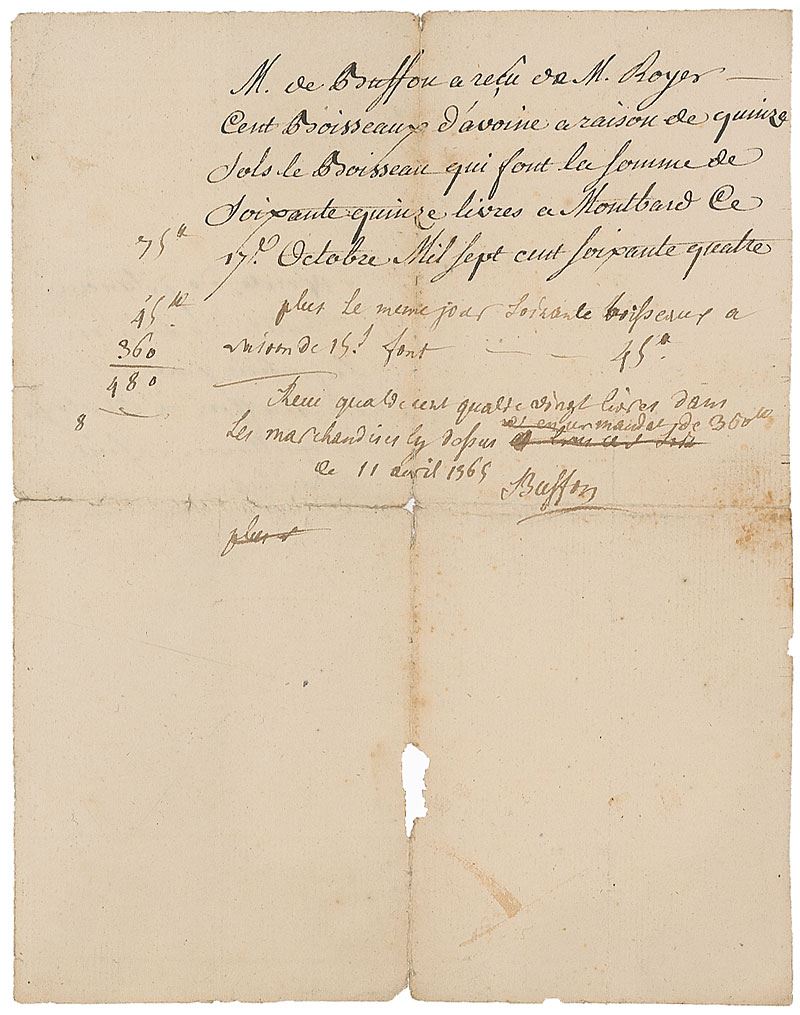 M. de Buffon a reçu de M. Royer
Cent Boisseaux d'avoine a raison de quinze
Sols le Boisseau qui font la somme de
Soixante quinze livres a Montbard Ce
75ᵗᵗ 17.ᵉ Octobre Mil sept cent soixante quatre
45ᵗᵗ plus le meme jour soixante boisseaux a
360 raison de 15.ˢ font 45ᵗᵗ
480
Recu quatre cent quatre vingt livres dans
et en un mandat de 360ᵗᵗ
8 les marchandises cy dessus
ce 11 avril 1765 Buffon
plus